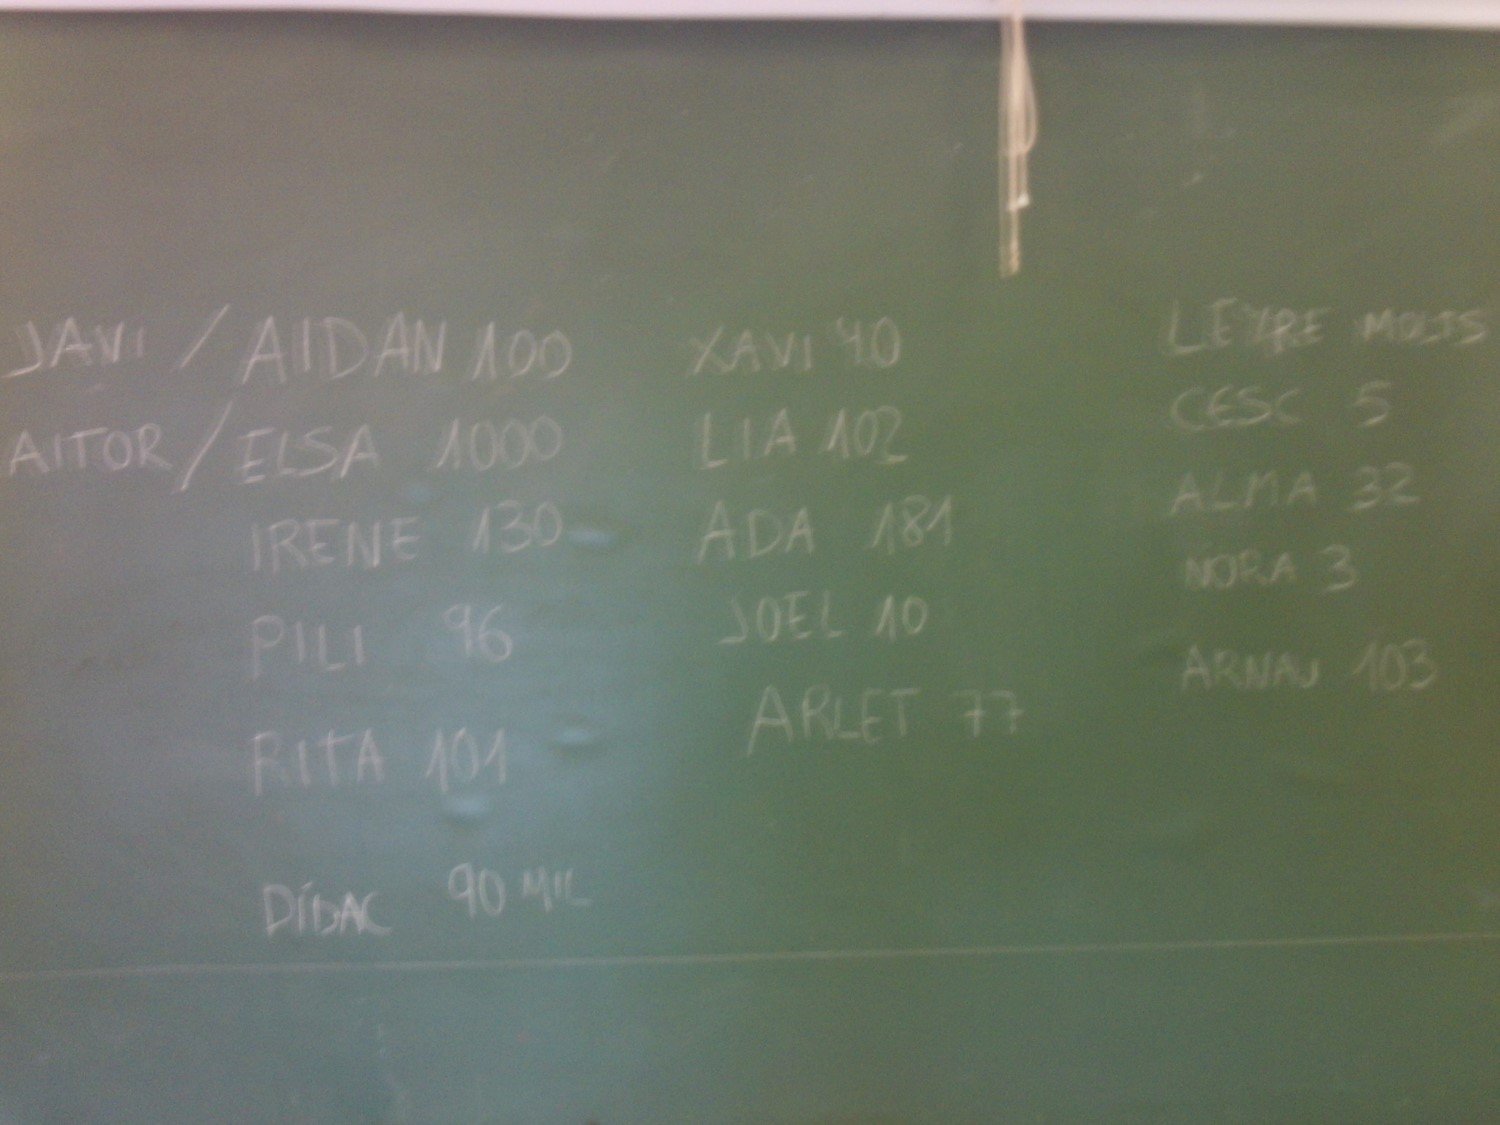 JAVI / AIDAN 100
AITOR / ELSA 1000
IRENE 130
PILI 96
RITA 101
DÍDAC 90 MIL
XAVI 40
LIA 102
ADA 181
JOEL 10
ARLET 77
LEYRE MOLTS
CESC 5
ALMA 32
NORA 3
ARNAU 103